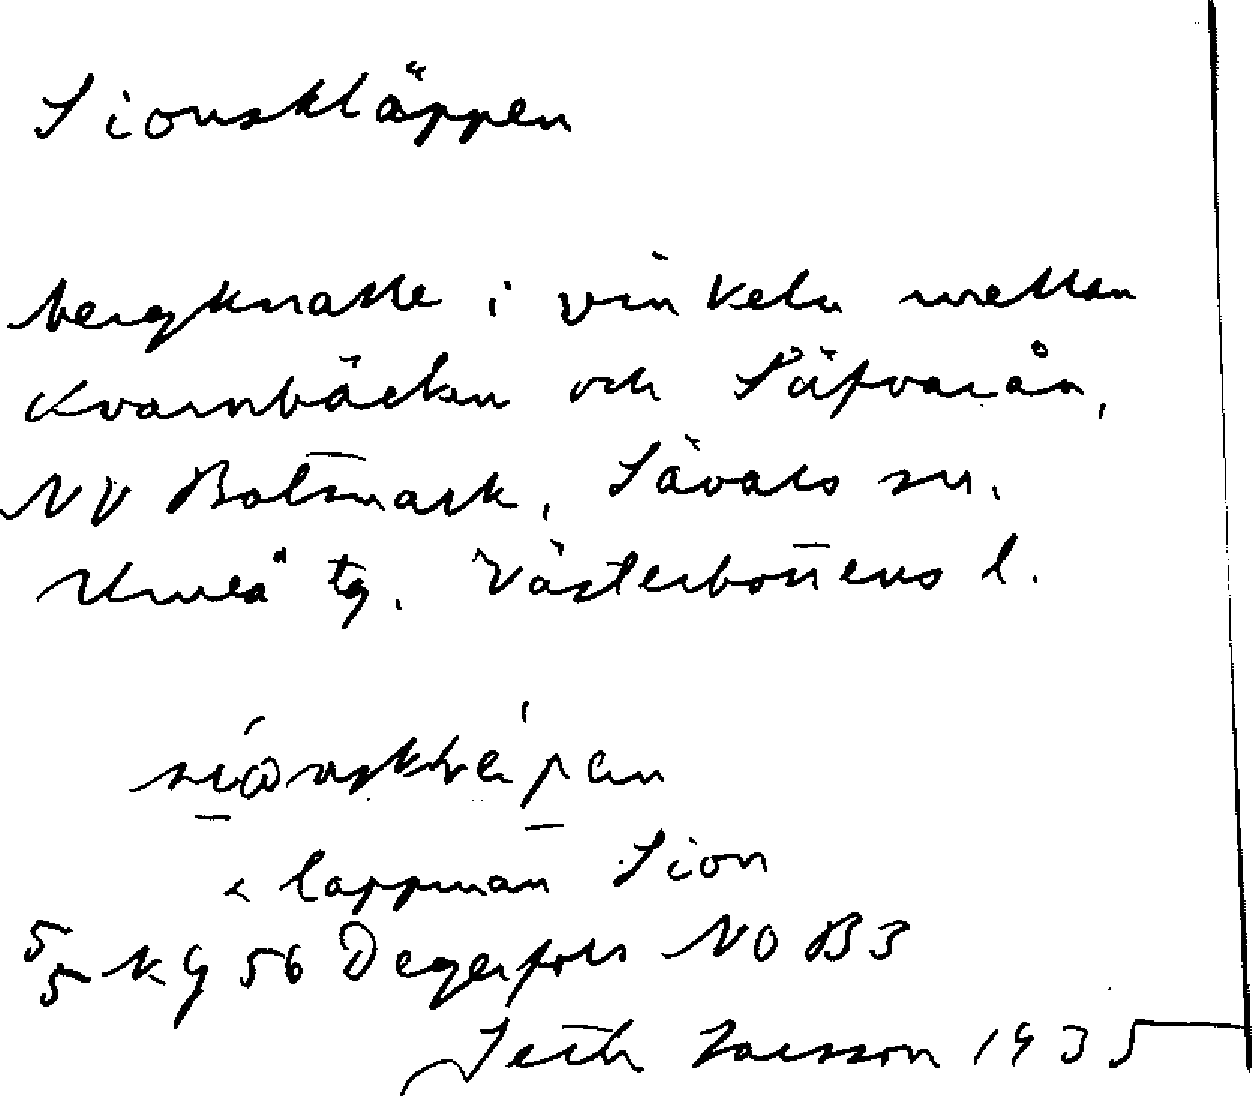 Sionskläppen
bergknalle i vinkeln mellan
Kvarnbäcken och Säfvarån,
NV Botsmark, Sävars sn.
Umeå tg. Västerbottens l.
< lappman Sion
5/5 KG 56 Degerfors NO B3
Seth Larsson 1935